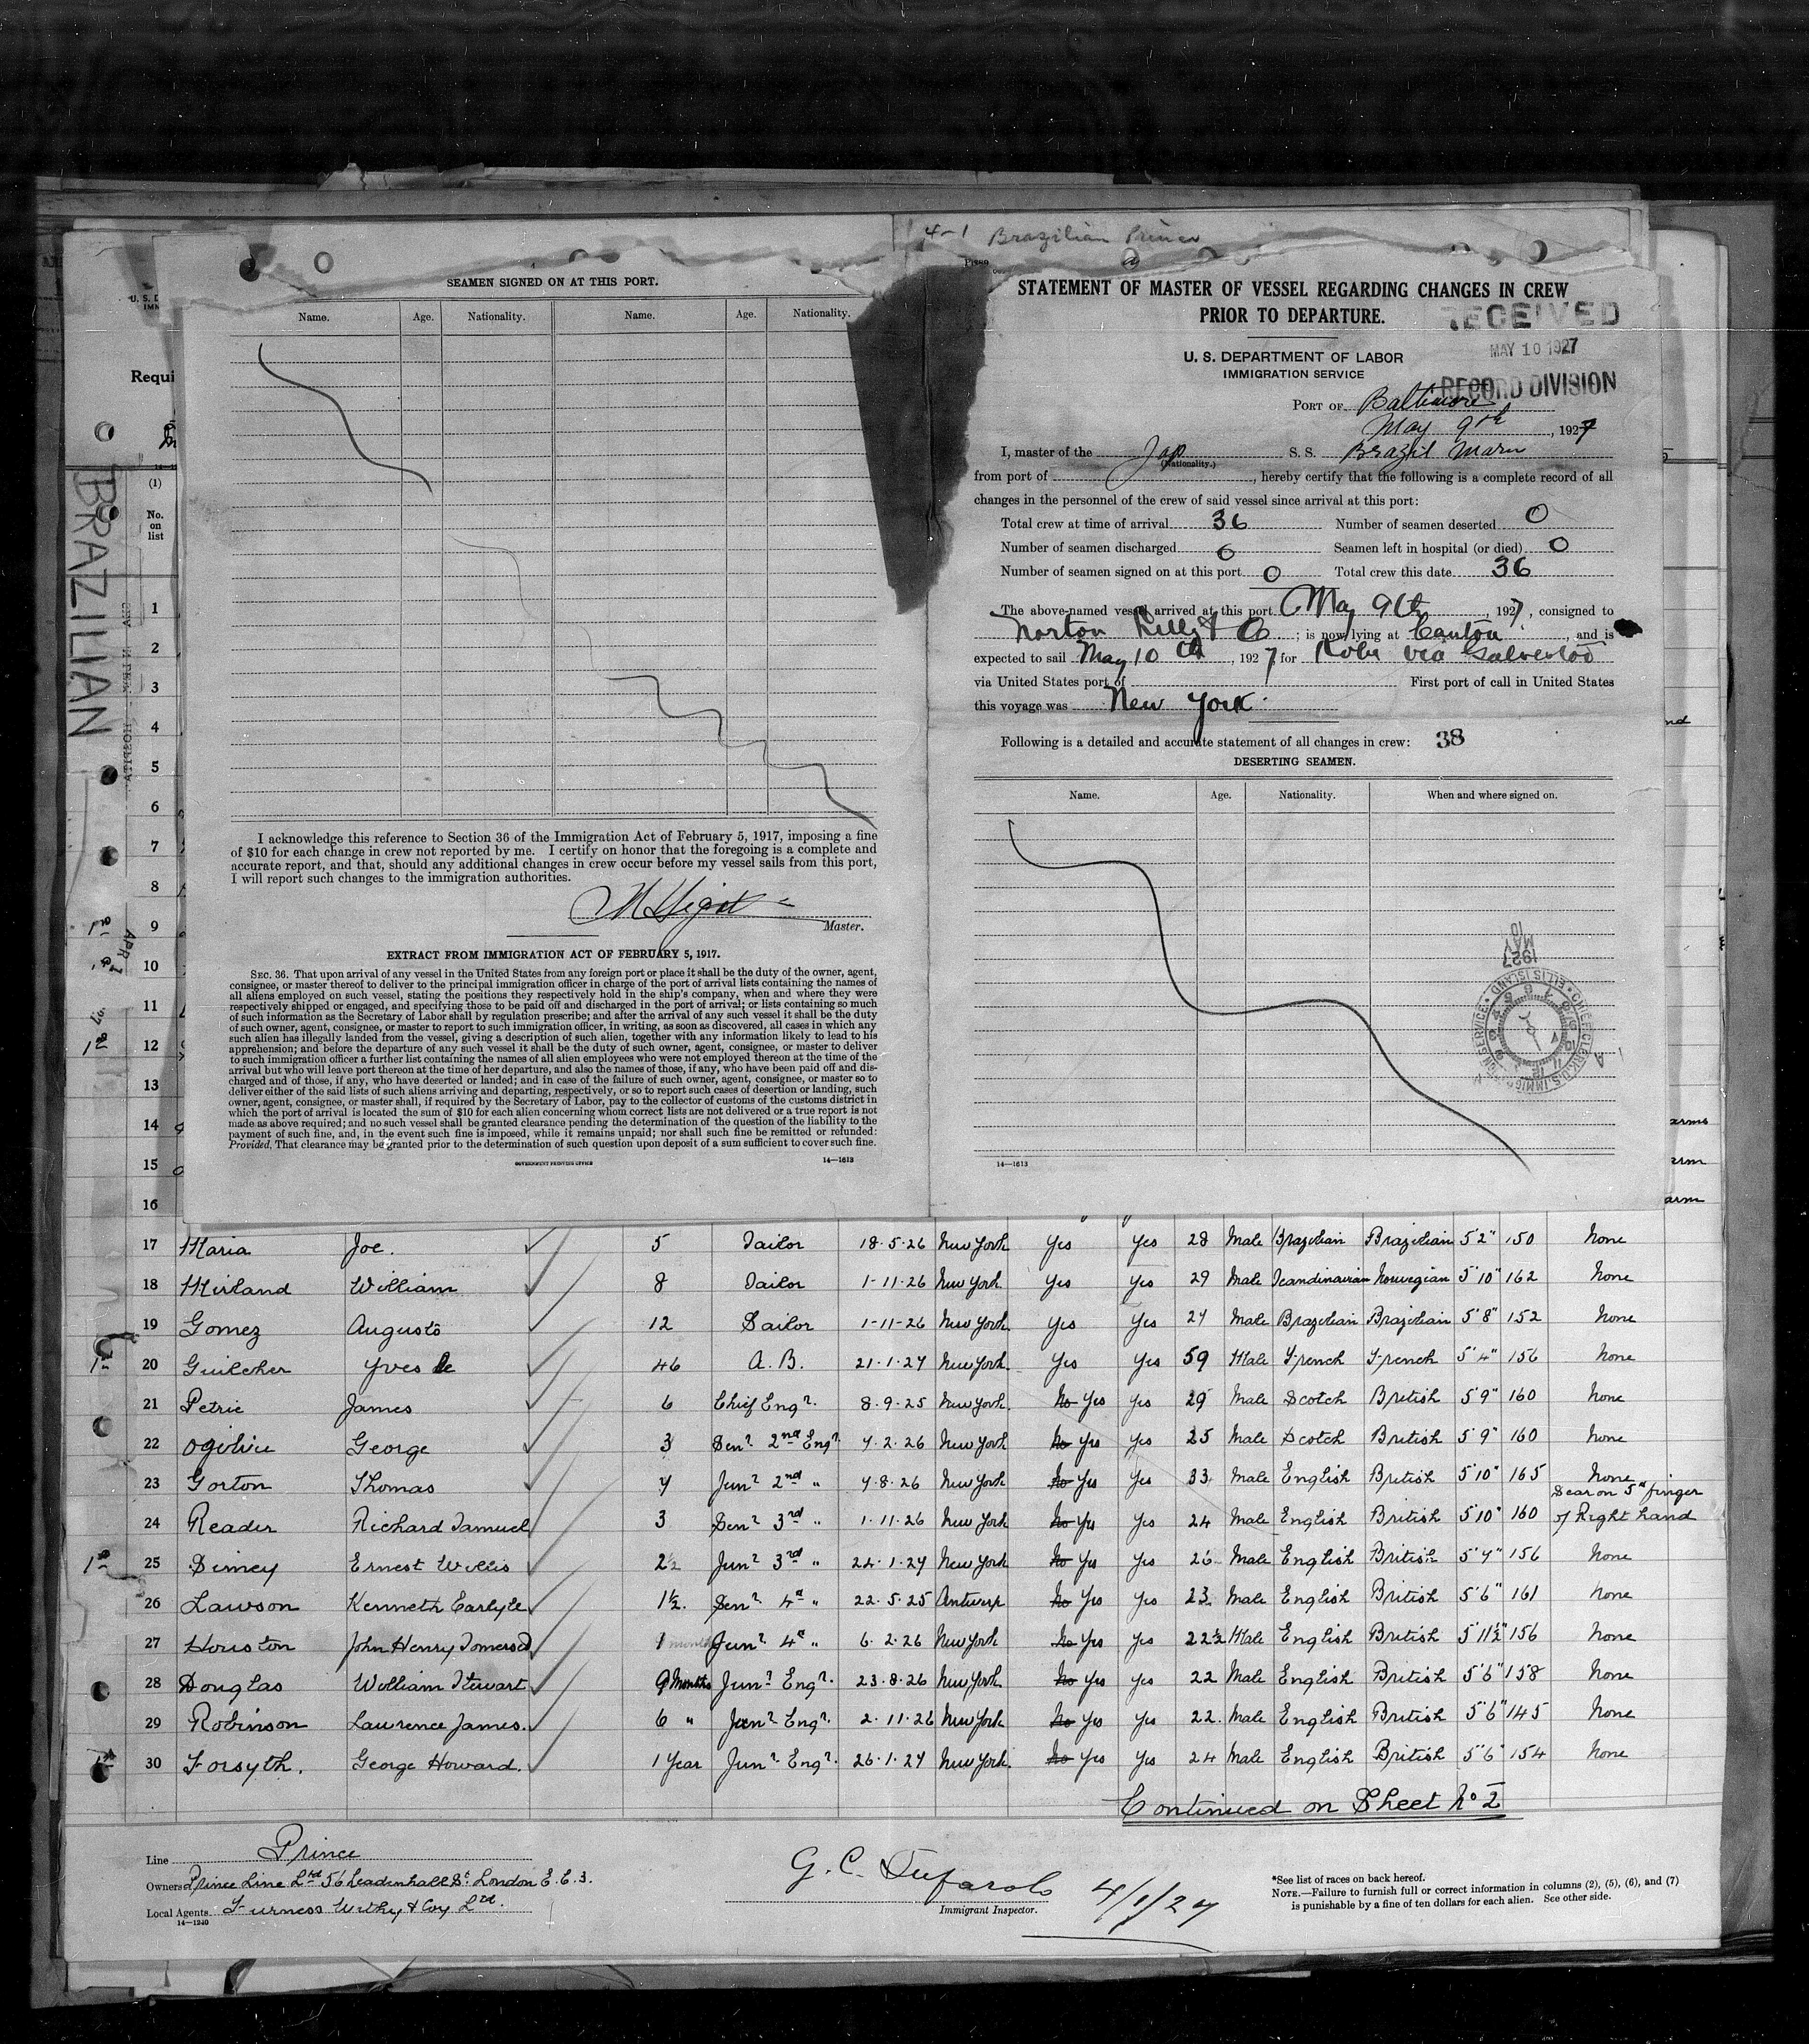 4-1 Brazilian Prince
SEAMEN SIGNED ON AT THIS PORT.
Name. Age. Nationality. Name. Age. Nationality.
I acknowledge this reference to Section 36 of the Immigration Act of February 5, 1917, imposing a fine
of $10 for each change in crew not reported by me. I certify on honor that the foregoing is a complete and
accurate report, and that, should any additional changes in crew occur before my vessel sails from this port,
I will report such changes to the immigration authorities.
Master.
EXTRACT FROM IMMIGRATION ACT OF FEBRUARY 5, 1917.
SEC. 36. That upon arrival of any vessel in the United States from any foreign port or place it shall be the duty of the owner, agent,
consignee, or master thereof to deliver to the principal immigration officer in charge of the port of arrival lists containing the names of
all aliens employed on such vessel, stating the positions they respectively hold in the ship's company, when and where they were
respectively shipped or engaged, and specifying those to be paid off and discharged in the port of arrival; or lists containing so much
of such information as the Secretary of Labor shall by regulation prescribe; and after the arrival of any such vessel it shall be the duty
of such owner, agent, consignee, or master to report to such immigration officer, in writing, as soon as discovered, all cases in which any
such alien has illegally landed from the vessel, giving a description of such alien, together with any information likely to lead to his
apprehension; and before the departure of any such vessel it shall be the duty of such owner, agent, consignee, or master to deliver
to such immigration officer a further list containing the names of all alien employees who were not employed thereon at the time of the
arrival but who will leave port thereon at the time of her departure, and also the names of those, if any, who have been paid off and dis-
charged and of those, if any, who have deserted or landed; and in case of the failure of such owner, agent, consignee, or master so to
deliver either of the said lists of such aliens arriving and departing, respectively, or so to report such cases of desertion or landing, such
owner, agent, consignee, or master shall, if required by the Secretary of Labor, pay to the collector of customs of the customs district in
which the port of arrival is located the sum of $10 for each alien concerning whom correct lists are not delivered or a true report is not
made as above required; and no such vessel shall be granted clearance pending the determination of the question of the liability to the
payment of such fine, and, in the event such fine is imposed, while it remains unpaid; nor shall such fine be remitted or refunded:
Provided, That clearance may be granted prior to the determination of such question upon deposit of a sum sufficient to cover such fine.
GOVERNMENT PRINTING OFFICE 14—1613
STATEMENT OF MASTER OF VESSEL REGARDING CHANGES IN CREW
PRIOR TO DEPARTURE.
RECEIVED
MAY 10 1927
RECORD DIVISION
U. S. DEPARTMENT OF LABOR
IMMIGRATION SERVICE
PORT OF Baltimore
May 9th, 1927
I, master of the Jap S. S. Brazil Maru
(Nationality.)
from port of , hereby certify that the following is a complete record of all
changes in the personnel of the crew of said vessel since arrival at this port:
Total crew at time of arrival 36 Number of seamen deserted 0
Number of seamen discharged 0 Seamen left in hospital (or died) 0
Number of seamen signed on at this port 0 Total crew this date 36
The above-named vessel arrived at this port May 9th, 1927, consigned to
Norton Lilly & Co; is now lying at Canton, and is
expected to sail May 10th, 1927, for Kobe via Galveston
via United States port of First port of call in United States
this voyage was New York.
Following is a detailed and accurate statement of all changes in crew: 38
DESERTING SEAMEN.
Name. Age. Nationality. When and where signed on.
1927
MAY
10
14—1613
BRAZILIAN
Requi
(1)
No.
on
list
1
2
3
4
5
6
7
8
9
10
11
12
13
14
15
16
17 Maria Joe. 5 Sailor 18.5.26 New York Yes Yes 28 Male Brazilian Brazilian 5'2" 150 None
18 Mirland William 8 Sailor 1-11-26 New York Yes Yes 29 Male Scandinavian Norwegian 5'10" 162 None
19 Gomez Augusto 12 Sailor 1-11-26 New York Yes Yes 27 Male Brazilian Brazilian 5'8" 152 None
20 Guilcher Yves le 46 A. B. 21.1.27 New York Yes Yes 59 Male French French 5'4" 156 None
21 Petrie James 6 Chief Engr. 8.9.25 New York No Yes Yes 29 Male Scotch British 5'9" 160 None
22 Ogilvie George 3 Senr 2nd Engr 7.2.26 New York No Yes Yes 25 Male Scotch British 5'9" 160 None
23 Gorton Thomas 7 Junr 2nd " 7.8.26 New York No Yes Yes 33 Male English British 5'10" 165 None
24 Reader Richard Samuel 3 Senr 3rd " 1.11.26 New York No Yes Yes 24 Male English British 5'10" 160 Scar on 5th finger of Right hand
25 Simey Ernest Willis 2½ Junr 3rd " 24.1.27 New York No Yes Yes 26 Male English British 5'7" 156 None
26 Lawson Kenneth Carlyle 1½ Senr 4th " 22.5.25 Antwerp No Yes Yes 23 Male English British 5'6" 161 None
27 Houston John Henry Somersd 1 month Junr 4th " 6.2.26 New York No Yes Yes 22½ Male English British 5'11½" 156 None
28 Douglas William Stewart 9 Months Junr Engr. 23.8.26 New York No Yes Yes 22 Male English British 5'6" 158 None
29 Robinson Laurence James. 6 " Junr Engr. 2.11.26 New York No Yes Yes 22 Male English British 5'6" 145 None
30 Forsyth. George Howard. 1 Year Junr Engr. 26.1.27 New York. No Yes Yes 24 Male English British 5'6" 154 None
Continued on Sheet No 2
Line Prince
Owners Prince Line Ltd 56 Leadenhall St. London E.C.3.
Local Agents Furness Withy & Coy Ltd.
14—1240
G. C. Tufarolo 4/1/27
Immigrant Inspector.
*See list of races on back hereof.
NOTE.—Failure to furnish full or correct information in columns (2), (5), (6), and (7)
is punishable by a fine of ten dollars for each alien. See other side.